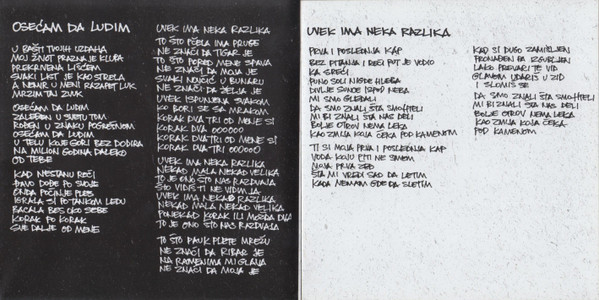 OSEĆAM DA LUDIM
U BAŠTI TVOJIH UZDAHA
MOJ ŽIVOT PRAZNA JE KLUPA
PREKRIVENA LIŠĆEM
SVAKI LIST JE KAO STRELA
A NEMIR U MENI RAZAPET LUK
MRZIM TAJ ZVUK
OSEĆAM DA LUDIM
ZALEĐEN U SVETU TOM
ROĐEN U ZNAKU POGREŠNOM
OSEĆAM DA LUDIM
U TELU KOJE GORI BEZ DODIRA
NA MILION GODINA DALEKO
OD TEBE
KAD NESTANU REČI
ĐAVO DOĐE PO SVOJE
ONDA POČINJE PLES
IGRALA SI PO TANKOM LEDU
BACALA BES OKO SEBE
KORAK PO KORAK
SVE DALJE OD MENE
UVEK IMA NEKA RAZLIKA
TO ŠTO PČELA IMA PRUGE
NE ZNAČI DA TIGAR JE
TO ŠTO PORED MENE SPAVA
NE ZNAČI DA MOJA JE
SVAKI NOVČIĆ U BUNARU
NE ZNAČI DA ŽELJA JE
UVEK ISPUNJENA SVAKOM
KO BORI SE SA MRAKOM
KORAK DVA TRI OD MENE SI
KORAK DVA OOOOOO
KORAK DVA TRI OD MENE SI
KORAK DVA TRI OOOOOO
UVEK IMA NEKA RAZLIKA
NEKAD MALA NEKAD VELIKA
TO JE ONO ŠTO NAS RAZDVAJA
ŠTO VIDIŠ TI NE VIDIM JA
UVEK IMA NEKA RAZLIKA
NEKAD MALA NEKAD VELIKA
PONEKAD KORAK ILI MOŽDA DVA
TO JE ONO ŠTO NAS RAZDVAJA
TO ŠTO PAUK PLETE MREŽU
NE ZNAČI DA RIBAR JE
NA RAMENIMA MI GLAVA
NE ZNAČI DA MOJA JE
UVEK IMA NEKA RAZLIKA
PRVA I POSLEDNJA KAP
BEZ PITANJA I REČI PUT JE VODIO
KA SREĆI
PUNO SOLI NIGDE HLEBA
DIVLJE SUNCE ISPOD NEBA
MI SMO GLEDALI
DA SMO ZNALI ŠTA SMO HTELI
MI BI ZNALI ŠTA NAS DELI
BOLJE OTROV NEMA LEKA
KAO ZMIJA KOJA ČEKA POD KAMENOM
TI SI MOJA PRVA I POSLEDNJA KAP
VODA KOJU PITI NE SMEM
MOJA PRVA ŽEĐ
ŠTA MI VREDI SAD DA LETIM
KADA NEMAM GDE DA SLETIM
KAD SI DUGO ZAMIŠLJEN
PRONAĐEN PA IZGUBLJEN
LAKO PREVARI TE VID
GLAVOM UDARIŠ U ZID
I SLOMIŠ SE
DA SMO ZNALI ŠTA SMO HTELI
MI BI ZNALI ŠTA NAS DELI
BOLJE OTROV NEMA LEKA
KAO ZMIJA KOJA ČEKA
POD KAMENOM